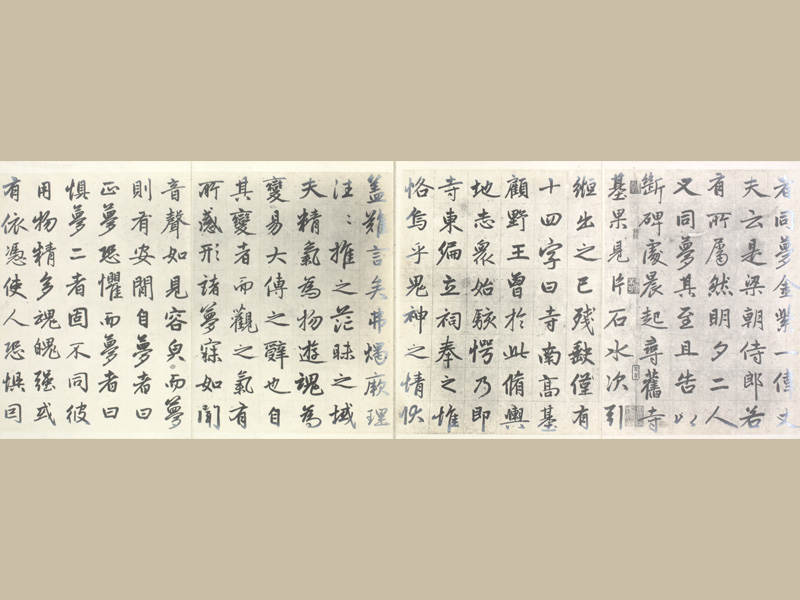 者同夢金紫一偉丈
夫云是梁朝侍郎若
有所屬然明夕二人
又同夢其至且告以
斷碑處晨起尋舊寺
基果見片石水次引
縆出之已殘缺僅有
十四字曰寺南高基
顧野王曾於此脩輿
地志衆始駭愕乃即
寺東偏立祠奉之惟
恪烏乎鬼神之情狀
盖難言矣弗燭厥理
注〻推之茫昧之域
夫精氣為物遊魂為
變易大傳之辭也自
其變者而觀之氣有
所感形諸夢寐如聞
音聲如見容㒵而夢
則有安閒自夢者曰
正夢恐懼而夢者曰
惧夢二者固不同彼
用物精多魂魄强或
有依憑使人恐惧囙